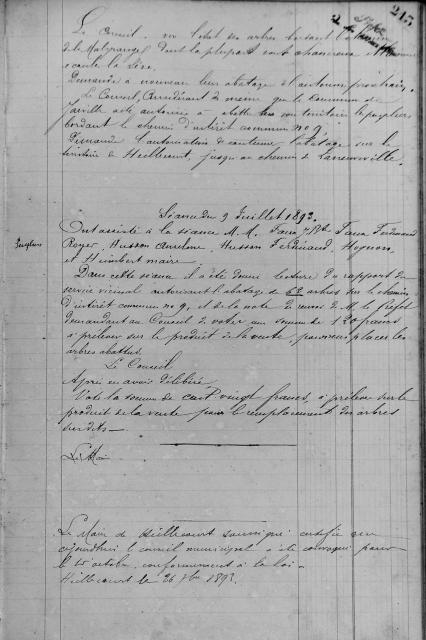 215
Le Conseil, vu l'état des arbres bordant le chemin
de la Malgrange dont la plupart sont chancreux
écoute la lève.
Demande à nouveau leur abatage à l'automne prochain.
Le Conseil, Considérant de même que la Commune de
Jarville a été autorisée à abattre sur son territoire les peupliers
bordant le chemin d'intérêt commun no 9.
Demande l'autorisation de continuer l'abatage sur le
territoire de Heillecourt, jusqu'au chemin de Laneuveville.
Séance du 9 Juillet 1893.
Ont assisté à la séance M.M. Ferdinand
Royer, Husson Anselme, Husson Ferdinand,
et Humbert maire
Dans cette séance il a été donné lecture du rapport du
service vicinal autorisant l'abatage de 62 arbres sur le chemin
d'intérêt commun no 9, et de la note de M. le préfet
demandant au Conseil de voter une somme de 120 francs
à prélever sur le produit de la vente, pour remplacer les
arbres abattus.
Le Conseil
Après en avoir délibéré
Vote la somme de cent vingt francs, à prélever sur le
produit de la vente pour le remplacement des arbres
susdits
Le Maire de Heillecourt soussigné certifie
aujourd'hui le conseil municipal a été convoqué pour
le octobre conformément à la loi
Heillecourt le 26 7bre 1893.